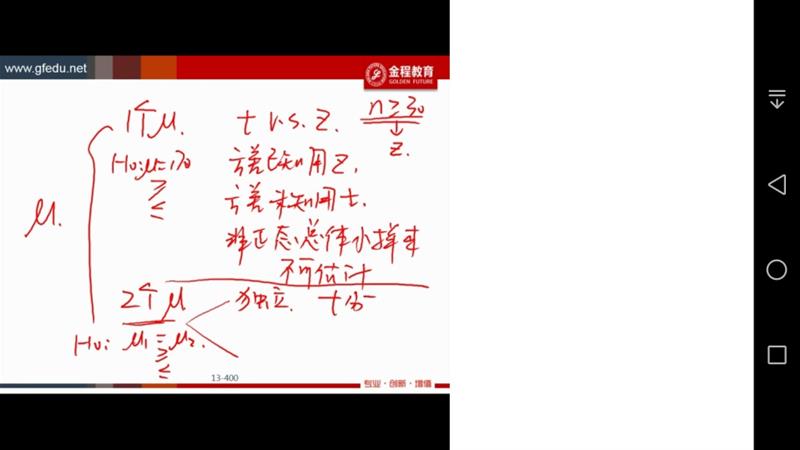 www.gfedu.net
金程教育
GOLDEN FUTURE
1个μ. t v.s. Z. n≥30
↓
Z.
H0:μ=170 方差已知用Z.
≥
≤
方差未知用t.
μ.
非正态总体小样本
不可估计
2个μ 独立. t分
H0: μ1=μ2.
≥
≤
13-400
专业·创新·增值